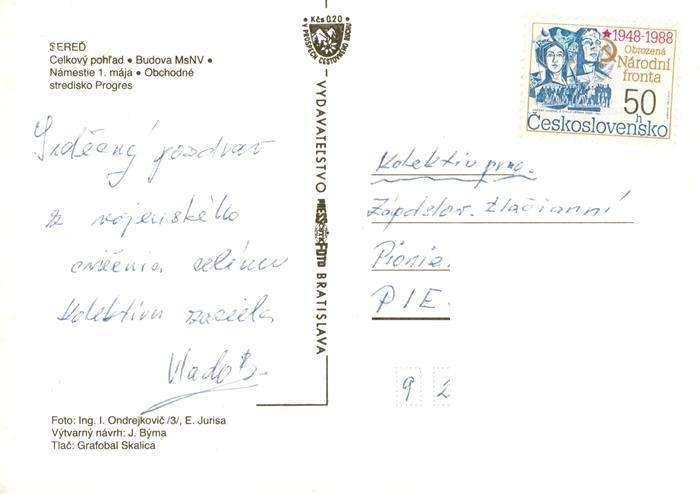 SEREĎ
Celkový pohľad • Budova MsNV •
Námestie 1. mája • Obchodné
stredisko Progres
Kčs 0.20
V PROSPECH CESTOVNÉHO RUCHU
VYDAVATEĽSTVO PRESSFOTO BRATISLAVA
1948-1988
Obrozená
Národní
fronta
50 h
Československo
Srdečný pozdrav
z vojenského
cvičenia celému
kolektívu zasiela
Vlado B.
Kolektív prac.
Západoslov. tlačiarní
PIE.
92
Foto: Ing. I. Ondrejkovič /3/, E. Jurisa
Výtvarný návrh: J. Býma
Tlač: Grafobal Skalica